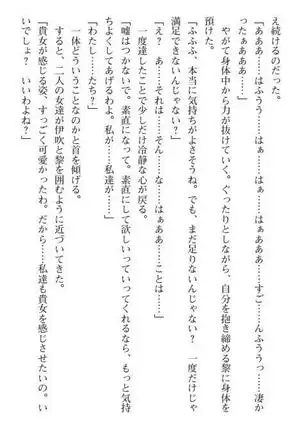 え続けるのだった。
「あああ……はふうう……はぁ……はぁあああ……すご……んふううっ……凄か
ったぁぁぁ……」
やがて身体中から力が抜けていく。ぐったりとしながら、自分を抱き締める黎に身体を
預けた。
「ふふふ、本当に気持ちがよさそうね。でも、まだ足りないんじゃない？　一度だけじゃ
満足できないんじゃない？」
「え？　あ……それは……そんな……はぁはぁ……ことは……」
一度達したことで少しだけ冷静な心が戻る。
「嘘はつかないで。素直になって。素直にして欲しいっていってくれるなら、もっと気持
ちよくしてあげるわよ。私が……私達が……」
「わたし……たち？」
一体どういうことなのかと首を傾げる。
すると、二人の女達が伊吹と黎を囲むように近づいてきた。
「貴女が感じる姿、すっごく可愛かったわ。だから……私達も貴女を感じさせたいの。い
いでしょ？　いいわよね？」